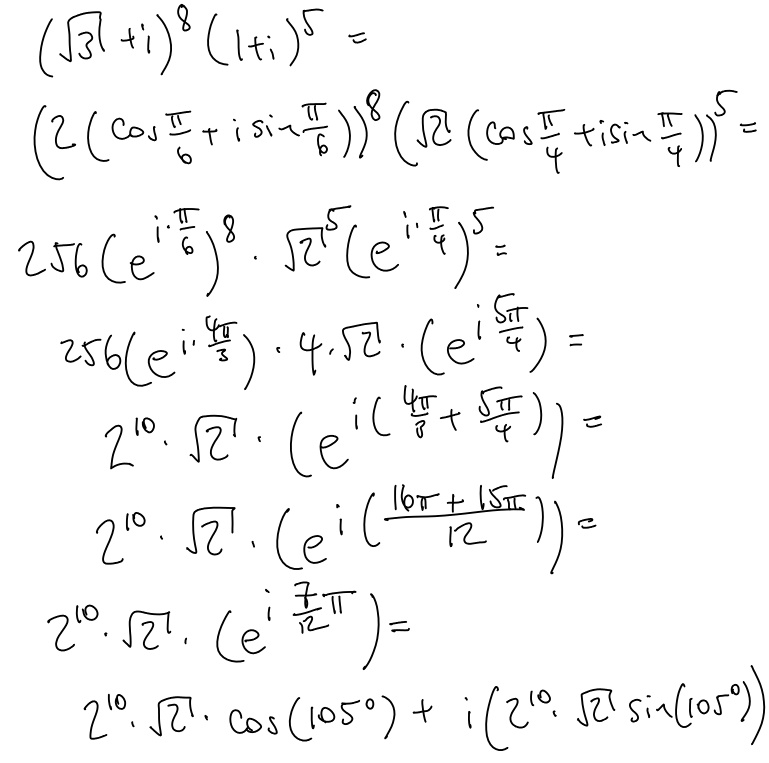 (√3 + i)^8 (1+i)^5 =
(2(cos π/6 + i sin π/6))^8 (√2 (cos π/4 + i sin π/4))^5 =
256(e^{i·π/6})^8 · √2^5 (e^{i·π/4})^5 =
256(e^{i·4π/3}) · 4·√2 · (e^{i 5π/4}) =
2^10 · √2 · (e^{i(4π/3 + 5π/4)}) =
2^10 · √2 · (e^{i((16π + 15π)/12)}) =
2^10 · √2 · (e^{i 7/12 π}) =
2^10 · √2 · cos(105°) + i(2^10 · √2 sin(105°))